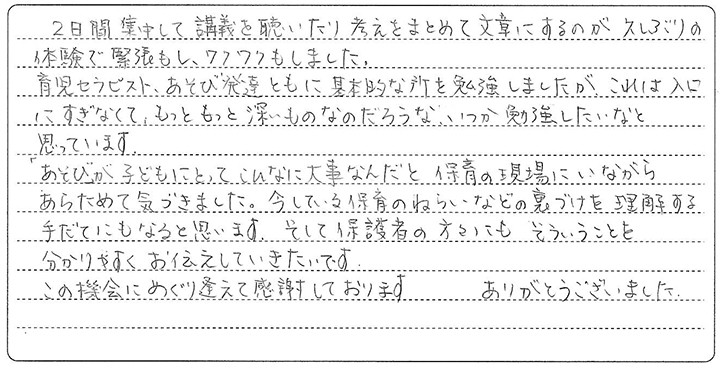 2日間集中して講義を聴いたり考えをまとめて文章にするのが久しぶりの
体験で緊張もし、ワクワクもしました。
育児セラピスト、あそび発達ともに基本的な所を勉強しましたが、これは入口
にすぎなくて、もっともっと深いものなのだろうな、いつか勉強したいなと
思っています。
「あそび」が子どもにとってこんなに大事なんだと保育の現場にいながら
あらためて気づきました。今している保育のねらいなどの裏づけを理解する
手だてにもなると思います。そして保護者の方々にもそういうことを
分かりやすくお伝えしていきたいです。
この機会にめぐり逢えて感謝しております ありがとうございました.